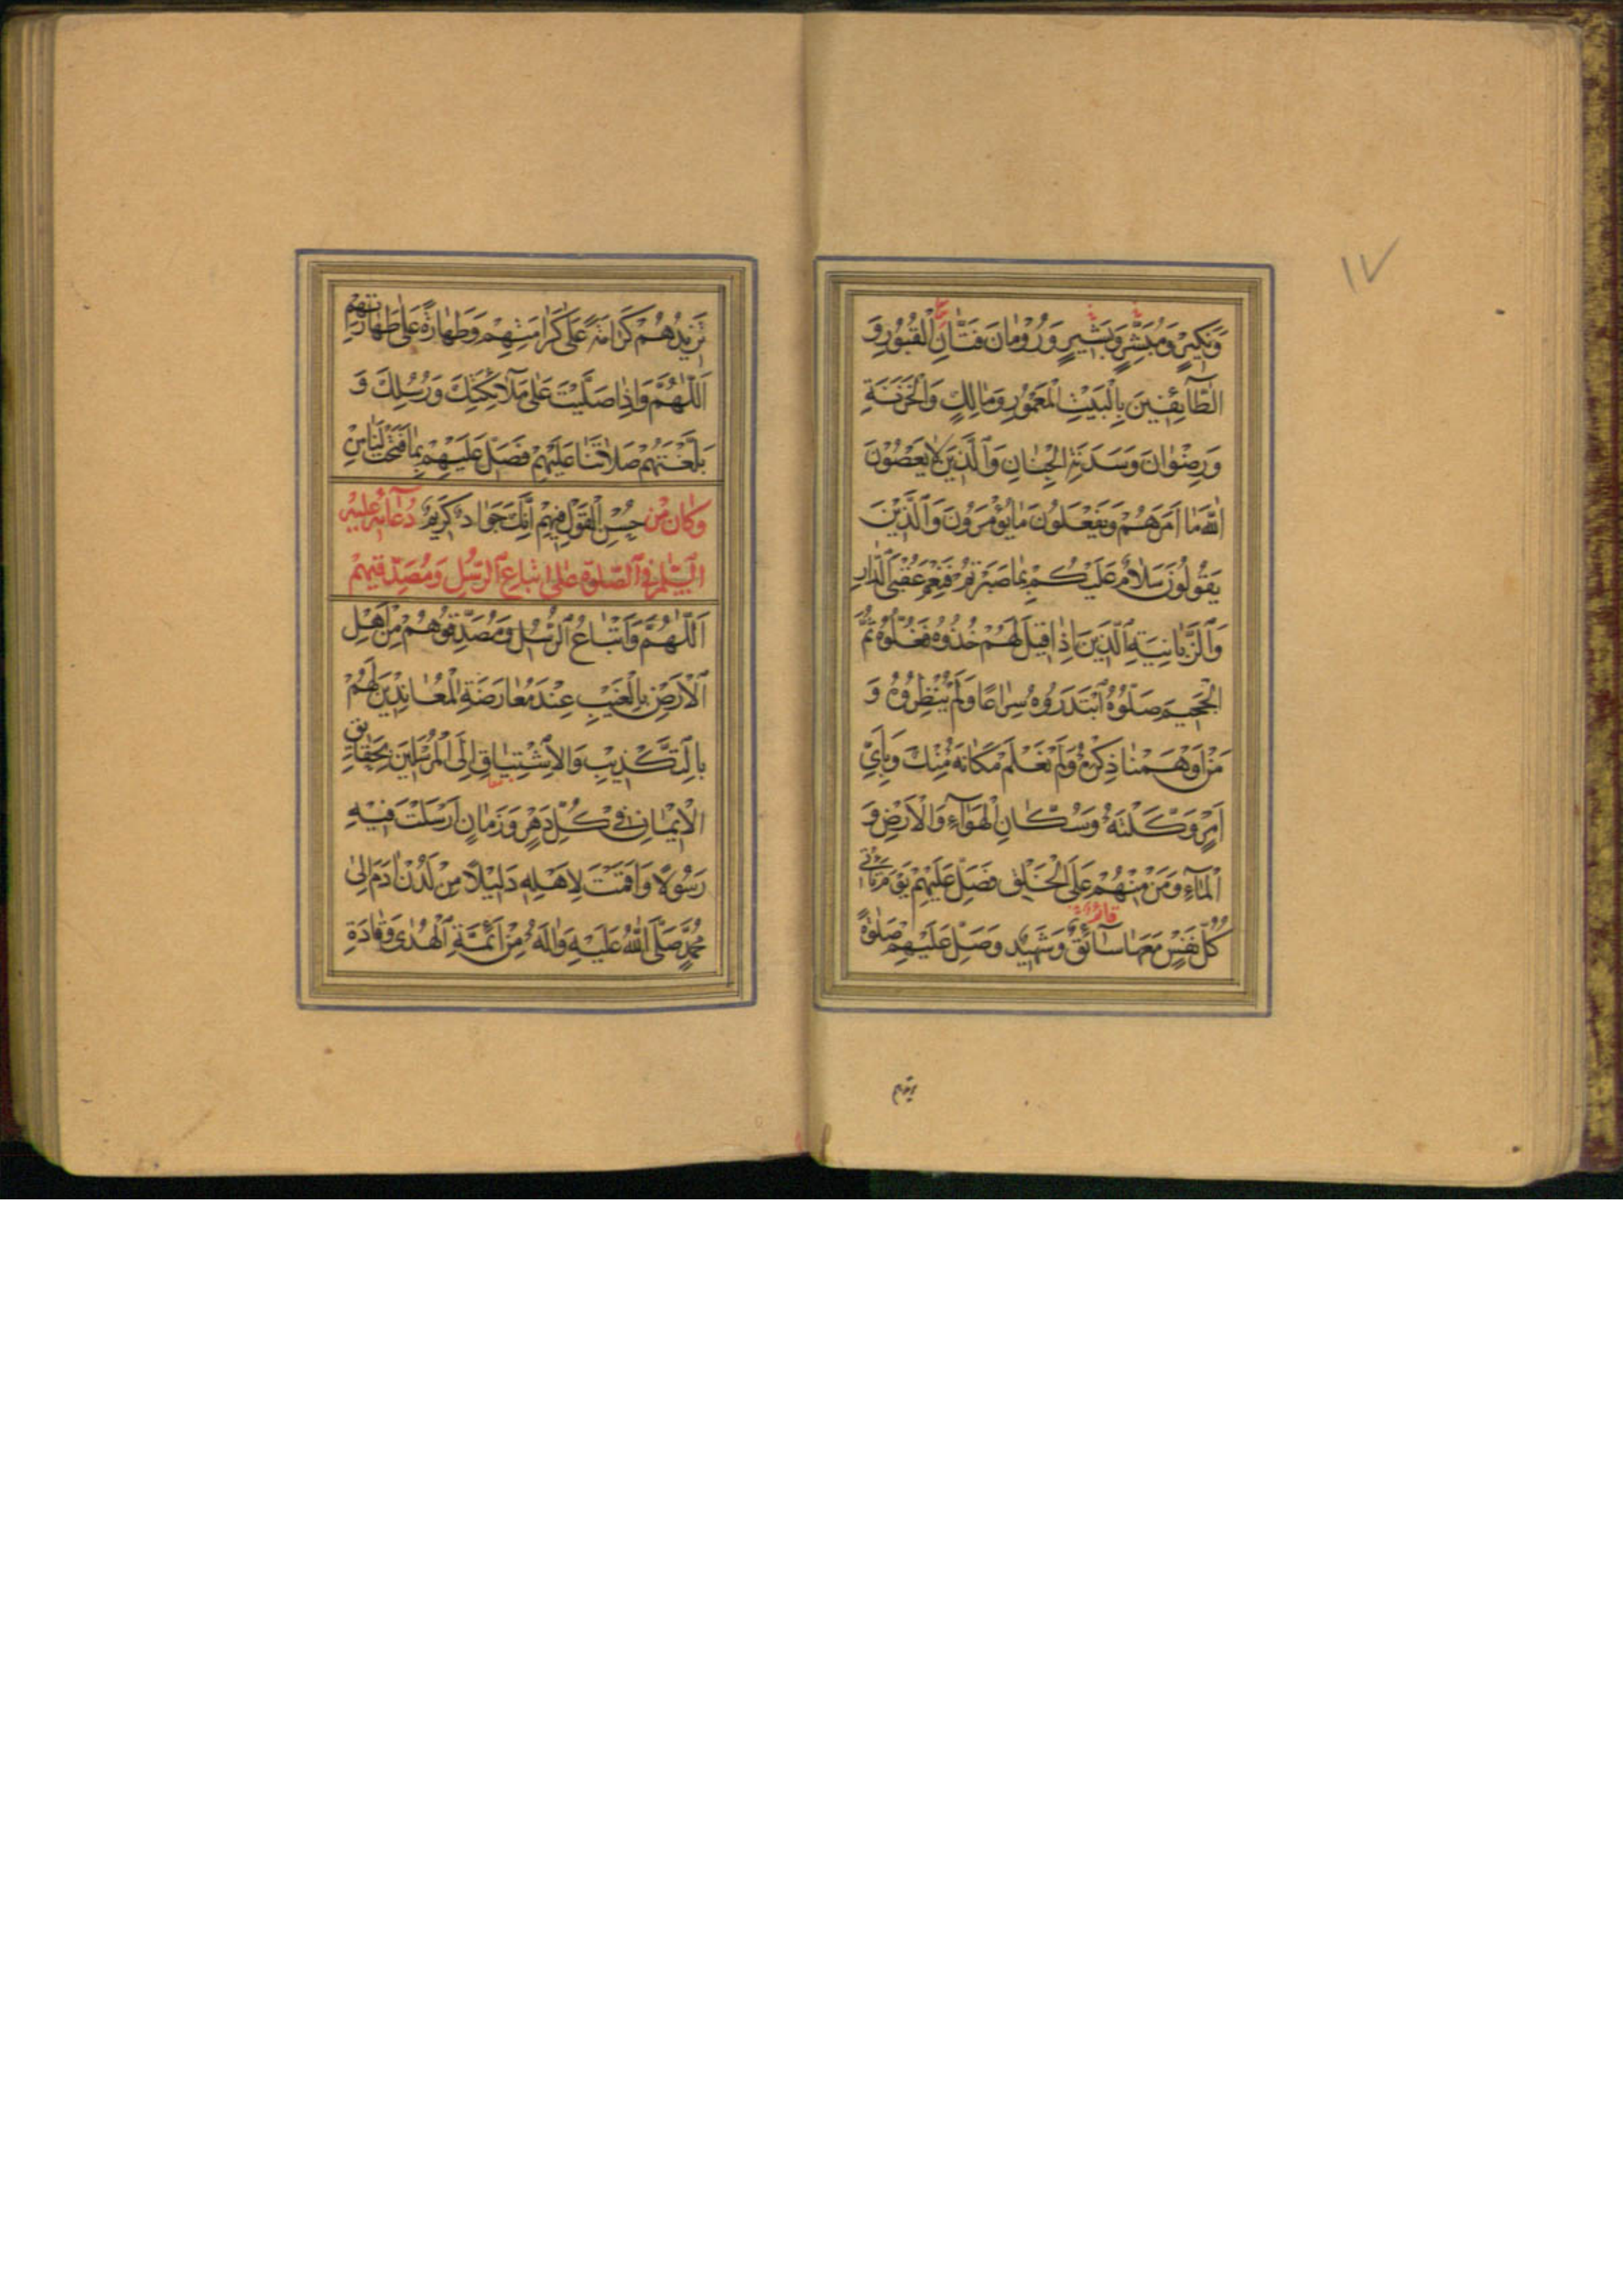 ١٧
وَنَكِيرٍ وَمُبَشِّرٍ وَبَشِيرٍ وَرُوْمَانَ فَتَّانِ الْقُبُورِ وَ
الطَّائِفِينَ بِالْبَيْتِ الْمَعْمُورِ وَمَالِكٍ وَالْخَزَنَةِ
وَرِضْوَانَ وَسَدَنَةِ الْجِنَانِ وَالَّذِينَ لَا يَعْصُوْنَ
اللّٰهَ مَا اَمَرَهُمْ وَيَفْعَلُونَ مَا يُؤْمَرُونَ وَالَّذِيْنَ
يَقُولُوْنَ سَلَامٌ عَلَيْكُمْ بِمَا صَبَرْتُمْ فَنِعْمَ عُقْبَى الدَّارِ
وَالزَّبَانِيَةِ الَّذِينَ اِذَا قِيْلَ لَهُمْ خُذُوْهُ فَغُلُّوهُ ثُمَّ
الْجَحِيمَ صَلُّوْهُ ابْتَدَرُوْهُ سِرَاعًا وَلَمْ يُنْظِرُوْهُ وَ
مَنْ اَوْهَمْنَا ذِكْرَهُ وَلَمْ نَعْلَمْ مَكَانَهُ مِنْكَ وَبِاَيِّ
اَمْرٍ وَكَّلْتَهُ وَسُكَّانِ الْهَوَآءِ وَالْاَرْضِ وَ
الْمَآءِ وَمَنْ مِنْهُمْ عَلَى الْخَلْقِ فَصَلِّ عَلَيْهِمْ يَوْمَ يَاْتِيْ
كُلُّ نَفْسٍ مَعَهَا سَآئِقٌ وَشَهِيْدٌ وَصَلِّ عَلَيْهِمْ صَلٰوةً
تَزِيْدُهُمْ كَرَامَةً عَلٰى كَرَامَتِهِمْ وَطَهَارَةً عَلٰى طَهَارَتِهِمْ
اَللّٰهُمَّ وَاِذَا صَلَّيْتَ عَلٰى مَلَآئِكَتِكَ وَرُسُلِكَ وَ
بَلَّغْتَهُمْ صَلَاتَنَا عَلَيْهِمْ فَصَلِّ عَلَيْهِمْ بِمَا فَتَحْتَ لَنَا مِنْ
وَكَانَ مِنْ حُسْنِ الْقَوْلِ فِيْهِمْ اِنَّكَ جَوَادٌ كَرِيْمٌ دُعَآئِهِ عَلَيْهِ
السَّلٰمُ فِي الصَّلٰوةِ عَلٰى اتْبَاعِ الرُّسُلِ وَمُصَدِّقِيْهِمْ
اَللّٰهُمَّ وَاَتْبَاعُ الرُّسُلِ وَمُصَدِّقُوْهُمْ مِنْ اَهْلِ
الْاَرْضِ بِالْغَيْبِ عِنْدَ مُعَارَضَةِ الْمُعَانِدِيْنَ لَهُمْ
بِالتَّكْذِيْبِ وَالْاِشْتِيَاقِ اِلَى الْمُرْسَلِيْنَ بِحَقَائِقِ
الْاِيْمَانِ فِيْ كُلِّ دَهْرٍ وَزَمَانٍ اَرْسَلْتَ فِيْهِ
رَسُوْلًا وَاَقَمْتَ لِاَهْلِهِ دَلِيْلًا مِنْ لَدُنْ اٰدَمَ اِلٰى
مُحَمَّدٍ صَلَّى اللّٰهُ عَلَيْهِ وَاٰلِهِ مِنْ اَئِمَّةِ الْهُدٰى وَقَادَةِ